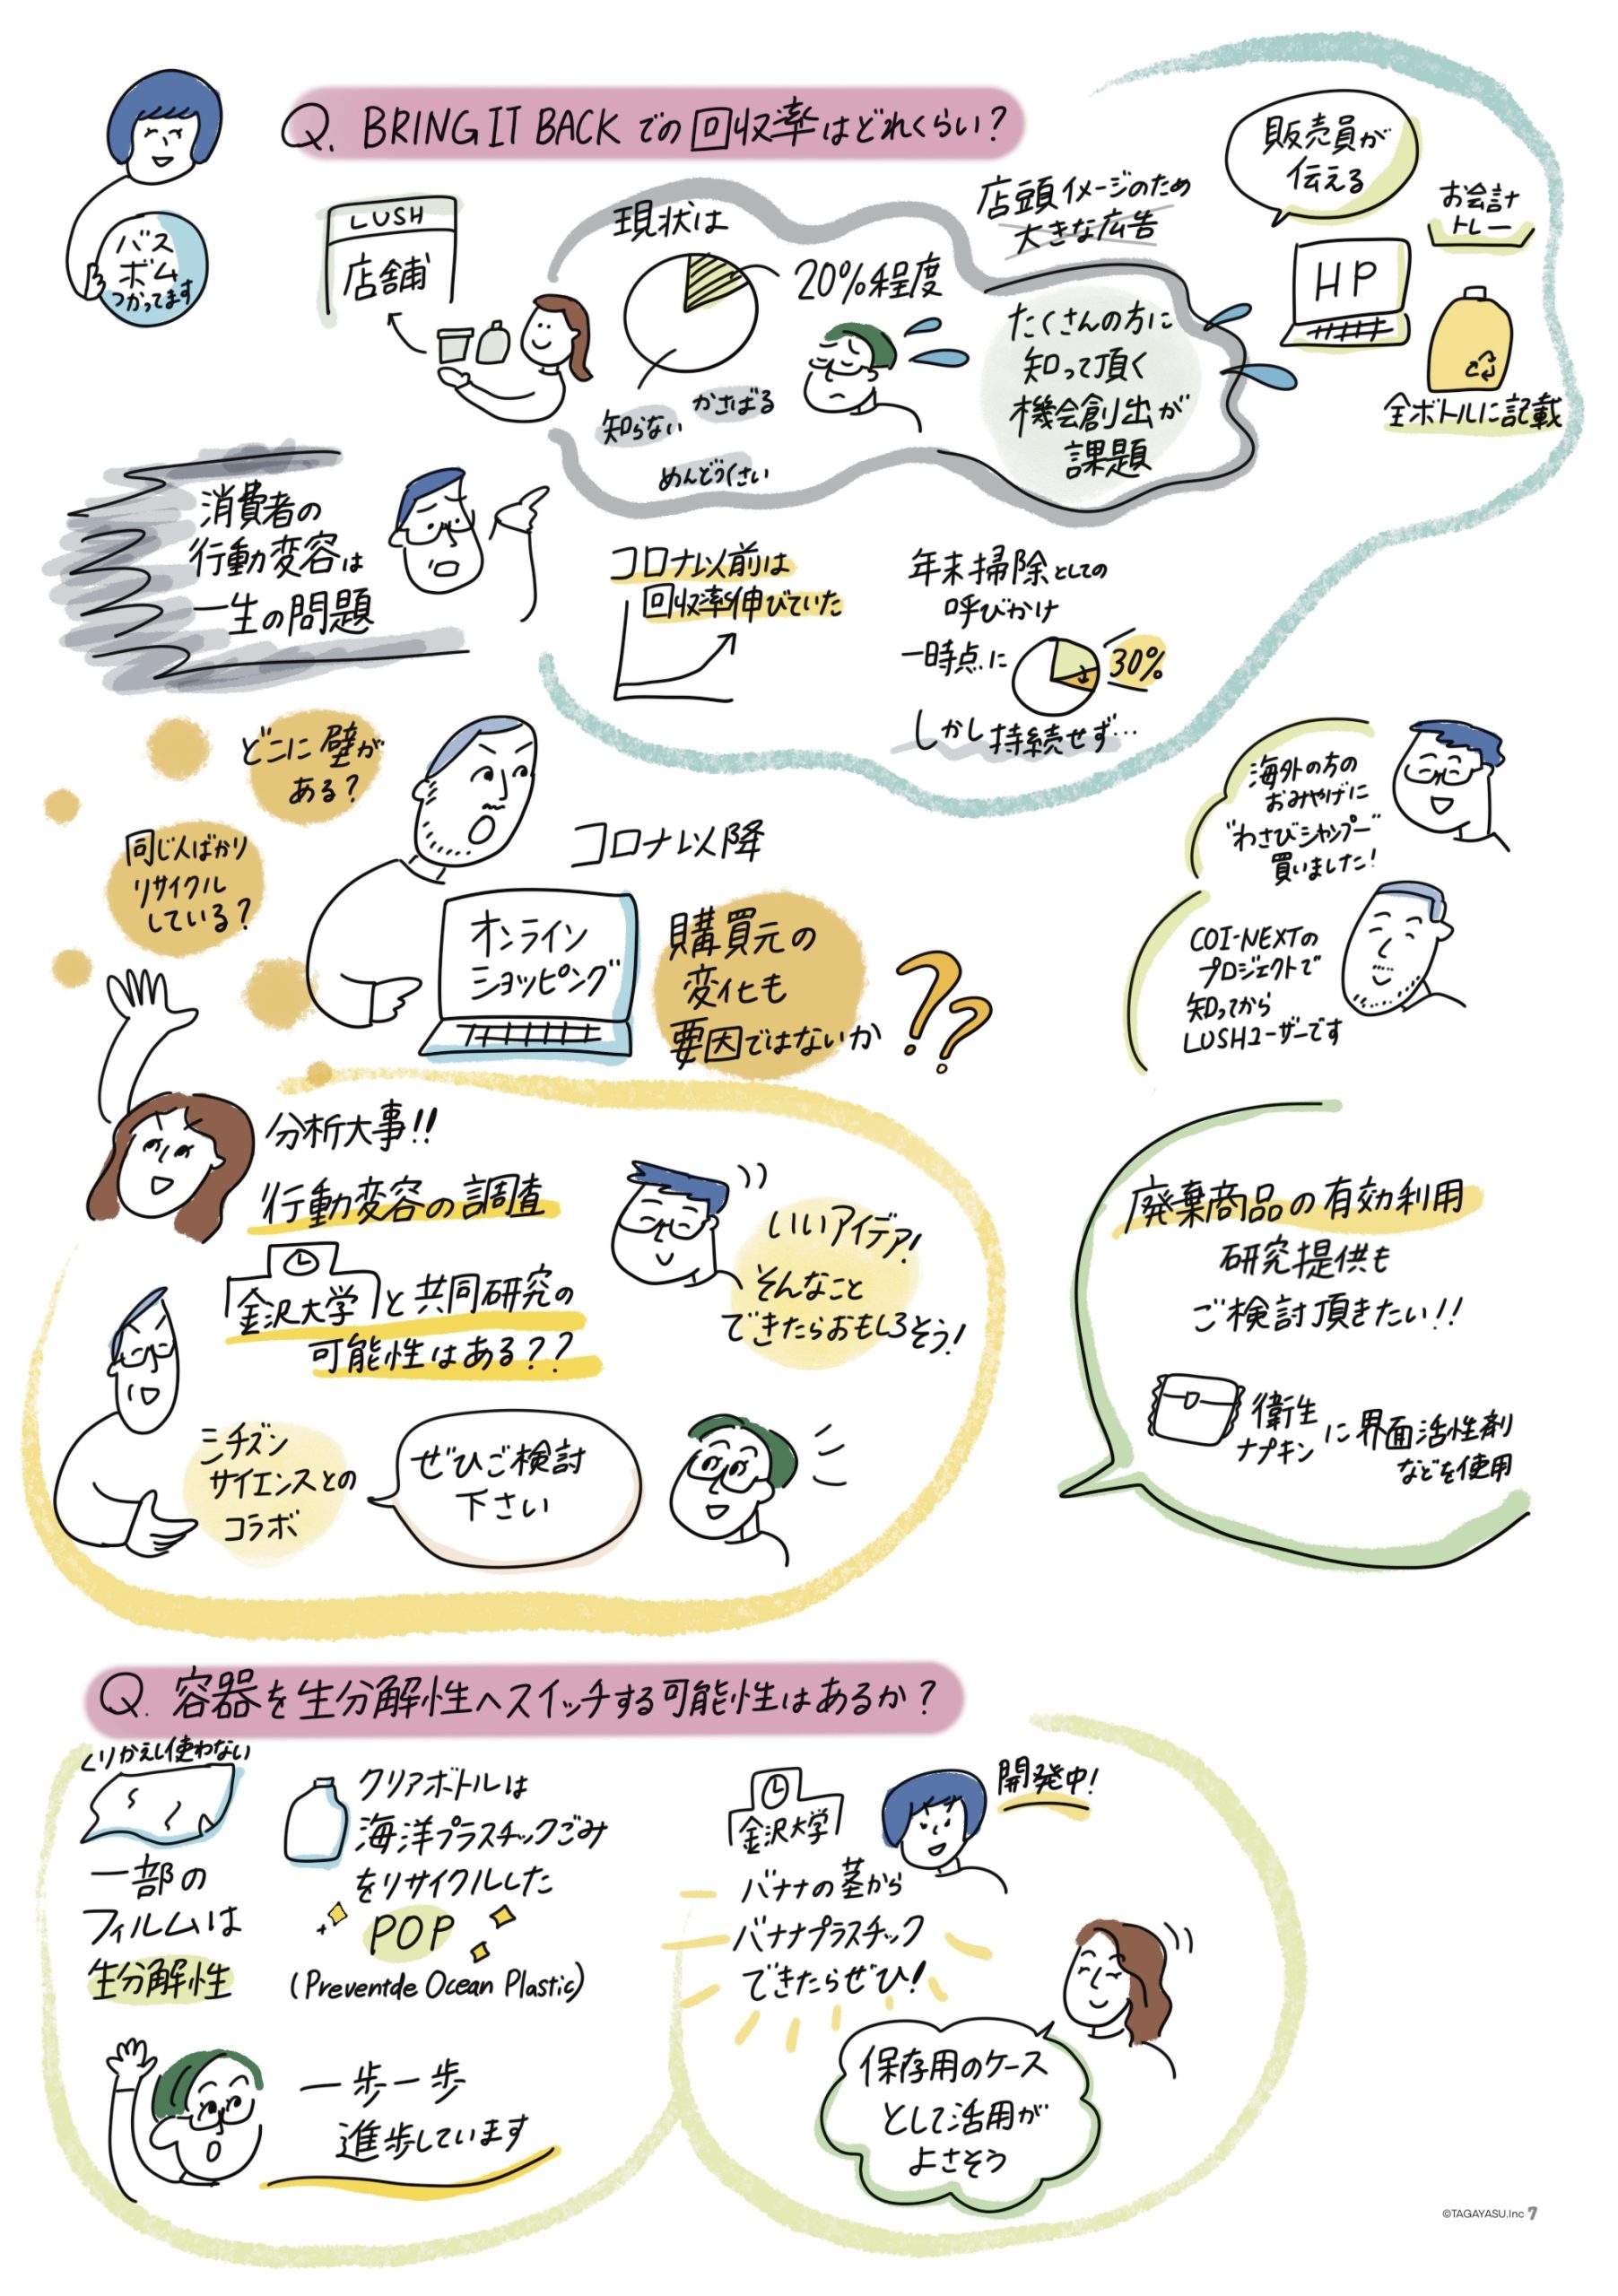 Q. BRING IT BACK での回収率はどれくらい？
バス
ボム
つかってます
LUSH
店舗
現状は
20%程度
知らない
かさばる
めんどうくさい
店頭イメージのため
大きな広告
たくさんの方に
知って頂く
機会創出が
課題
販売員が
伝える
お会計
トレー
HP
全ボトルに記載
消費者の
行動変容は
一生の問題
コロナ以前は
回収率伸びていた
年末掃除としての
呼びかけ
一時点に
30%
しかし持続せず…
どこに壁が
ある？
同じ人ばかり
リサイクル
している？
コロナ以降
オンライン
ショッピング
購買元の
変化も
要因ではないか
??
海外の方の
おみやげに
"わさびシャンプー"
買いました！
COI-NEXTの
プロジェクトで
知ってから
LUSHユーザーです
分析大事!!
行動変容の調査
金沢大学と共同研究の
可能性はある??
いいアイデア！
そんなこと
できたらおもしろそう！
シチズン
サイエンスとの
コラボ
ぜひご検討
下さい
廃棄商品の有効利用
研究提供も
ご検討頂きたい!!
衛生
ナプキン
に界面活性剤
などを使用
Q. 容器を生分解性へスイッチする可能性はあるか？
くりかえし使わない
一部の
フィルムは
生分解性
クリアボトルは
海洋プラスチックごみ
をリサイクルした
POP
(Preventde Ocean Plastic)
一歩一歩
進歩しています
金沢大学
開発中！
バナナの茎から
バナナプラスチック
できたらぜひ！
保存用のケース
として活用が
よさそう
©TAGAYASU.Inc 7